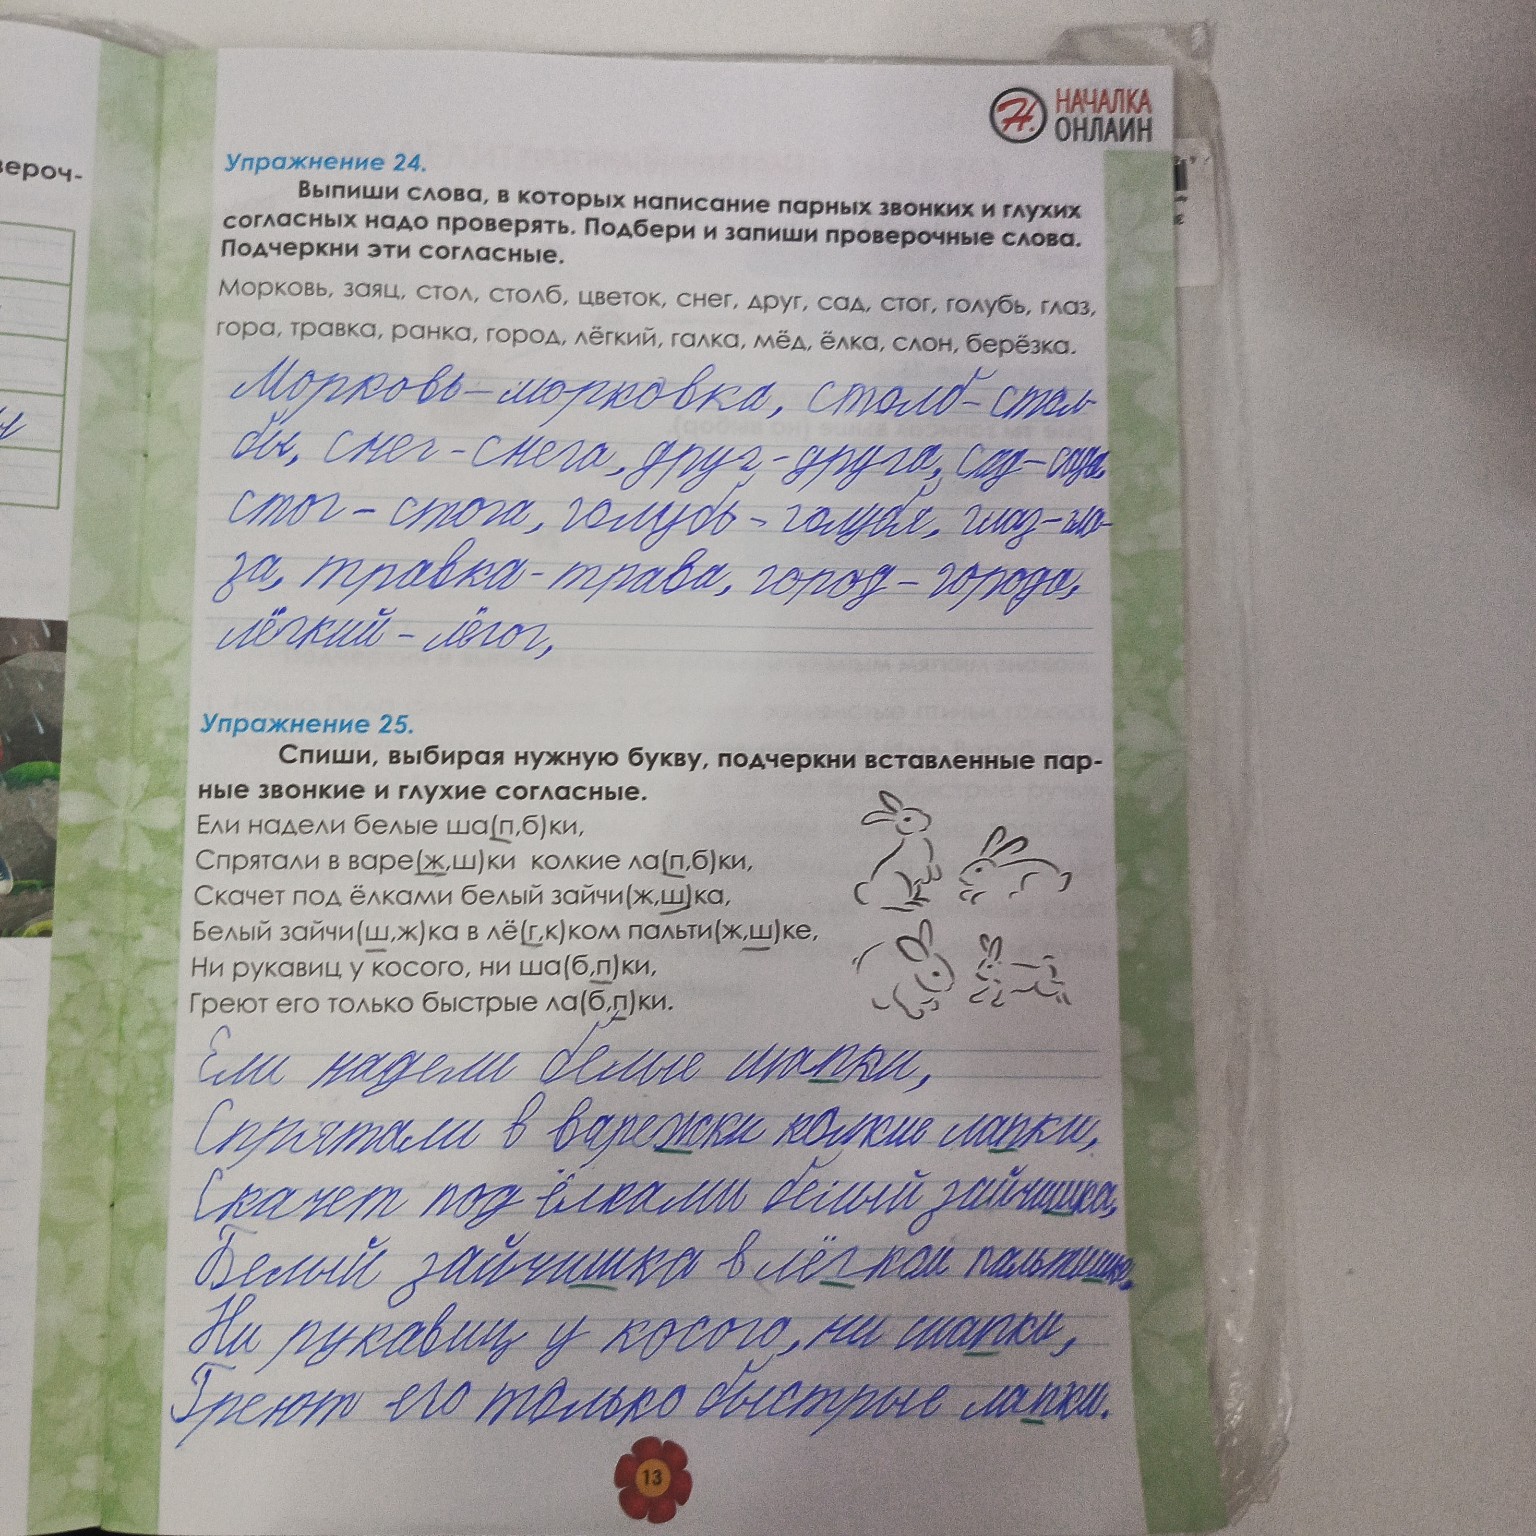 вероч-
НАЧАЛКА
ОНЛАЙН
Упражнение 24.
Выпиши слова, в которых написание парных звонких и глухих
согласных надо проверять. Подбери и запиши проверочные слова.
Подчеркни эти согласные.
Морковь, заяц, стол, столб, цветок, снег, друг, сад, стог, голубь, глаз,
гора, травка, ранка, город, лёгкий, галка, мёд, ёлка, слон, берёзка.
Морковь – морковка, столб – стол-
бы, снег – снега, друг – друга, сад – сада,
стог – стога, голубь – голубя, глаз – гла-
за, травка – трава, город – города,
лёгкий – лёгог,
Упражнение 25.
Спиши, выбирая нужную букву, подчеркни вставленные пар-
ные звонкие и глухие согласные.
Ели надели белые ша(п,б)ки,
Спрятали в варе(ж,ш)ки колкие ла(п,б)ки,
Скачет под ёлками белый зайчи(ж,ш)ка,
Белый зайчи(ш,ж)ка в лё(г,к)ком пальти(ж,ш)ке,
Ни рукавиц у косого, ни ша(б,п)ки,
Греют его только быстрые ла(б,п)ки.
Ели надели белые шапки,
Спрятали в варежки колкие лапки,
Скачет под ёлками белый зайчишка,
Белый зайчишка в лёгком пальтишке,
Ни рукавиц у косого, ни шапки,
Греют его только быстрые лапки.
13